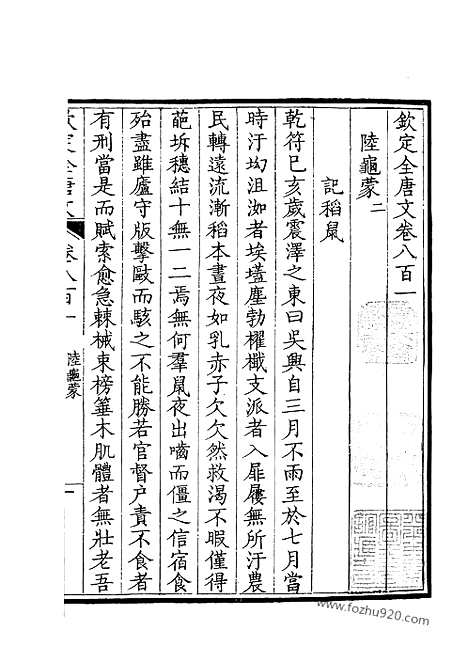 欽定全唐文卷八百一
陸龜蒙二
記稻鼠
乾符己亥歲震澤之東曰吳興自三月不雨至於七月當
時汙坳沮洳者埃壒塵勃櫂檝支派者入屝屨無所汙農
民轉遠流漸稻本晝夜如乳赤子欠欠然救渴不暇僅得
葩坼穗結十無一二焉無何羣鼠夜出嚙而僵之信宿食
殆盡雖廬守版擊毆而駭之不能勝若官督户責不食者
有刑當是而賦索愈急棘械束榜箠木肌體者無壯老吾
欽定全唐文
卷八百一
陸龜蒙
一
www.fozhu920.com